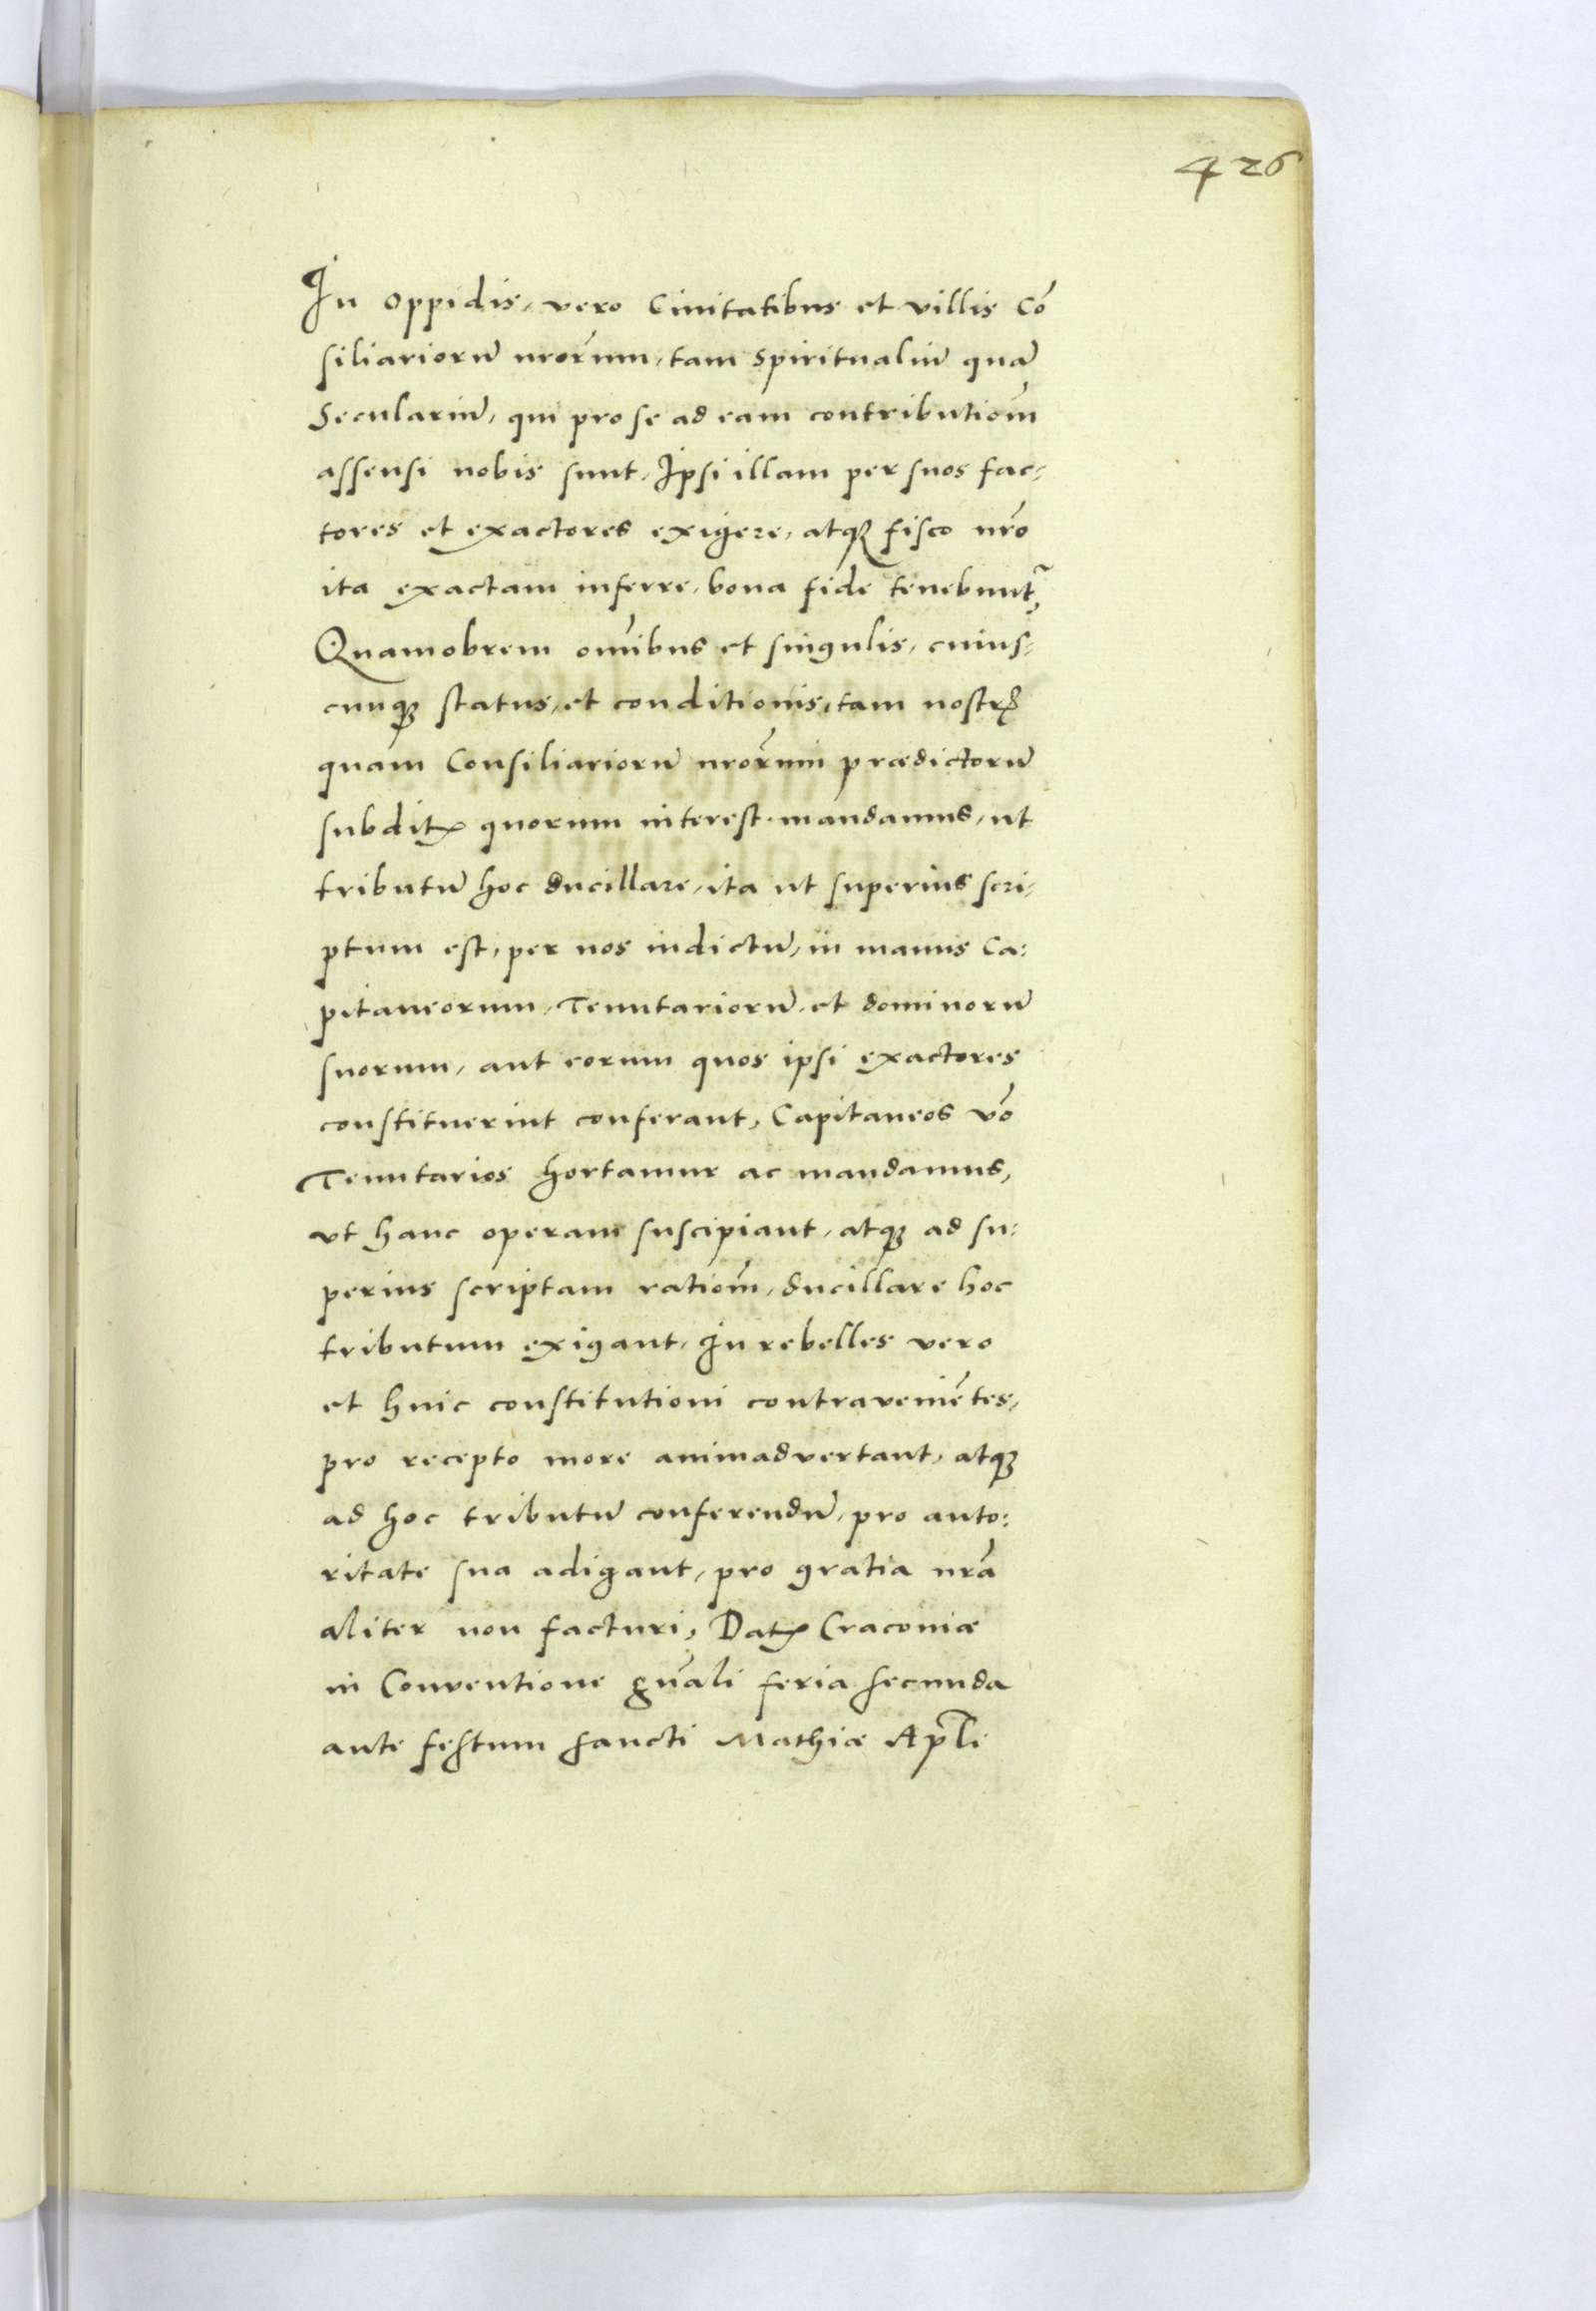 426
In oppidis, vero Civitatibus et villis Cō
siliariorū nrōrum, tam Spiritualiū quā
Secularīu, qui pro se ad eam contributiōm
assensi nobis sunt, Ipsi illam per suos fac-
tores et exactores exigere, atqꝫ fisco nrō
ita exactam inferre, bona fide tenebunt᷑,
Quamobrem om̄ibus et singulis, cuius-
cunqꝫ status, et conditionis, tam nostrꝭ
quam Consiliariorū nrōrum prædictorū
subditꝭ quorum interest mandamus, ut
tributū hoc ducillare, ita ut superius scri-
ptum est, per nos indictū, in manus Ca:
pitaneorum, Tenutariorū, et dominorū
suorum, aut eorum quos ipsi exactores
constituerint conferant, Capitaneos vō
Tenutarios hortamur ac mandamus,
ut hanc operam suscipiant, atqꝫ ad su:
perius scriptam ratiōm, ducillare hoc
tributum exigant, In rebelles vero
et huic constitutioni contravenīetes,
pro recepto more animadvertant, atqꝫ
ad hoc tributū conferendū, pro auto:
ritate sua adigant, pro gratia nrā
aliter non facturi, Datꝭ Cracoviæ
in Conventione gn̄ali feria secunda
ante festum sancti Mathiæ Apl̄i